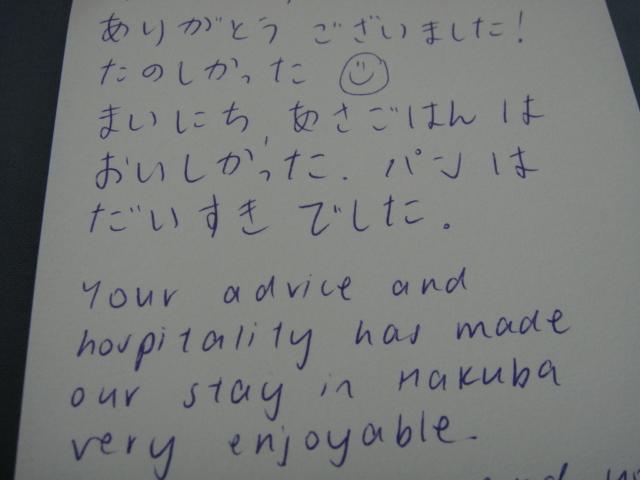 ありがとう ございました!
たのしかった
まいにち、あさごはん は
おいしかった. パン は
だいすき でした。
Your advice and
hospitality has made
our stay in Hakuba
very enjoyable.